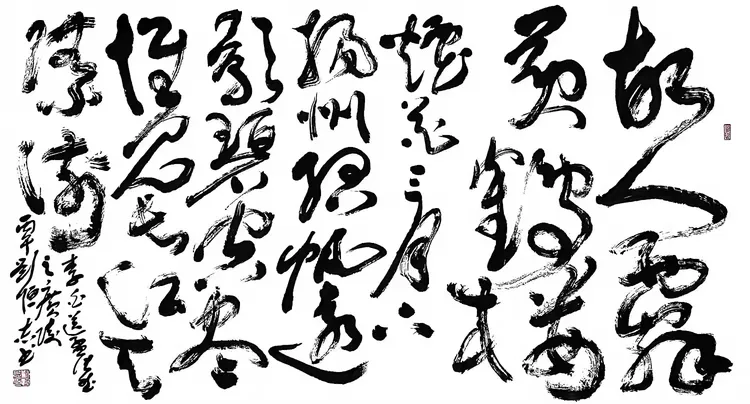 故人西辭
黃鶴樓
煙花三月下
揚州孤帆遠
影碧空盡
惟見長江天
際流
李白送孟浩然
之廣陵